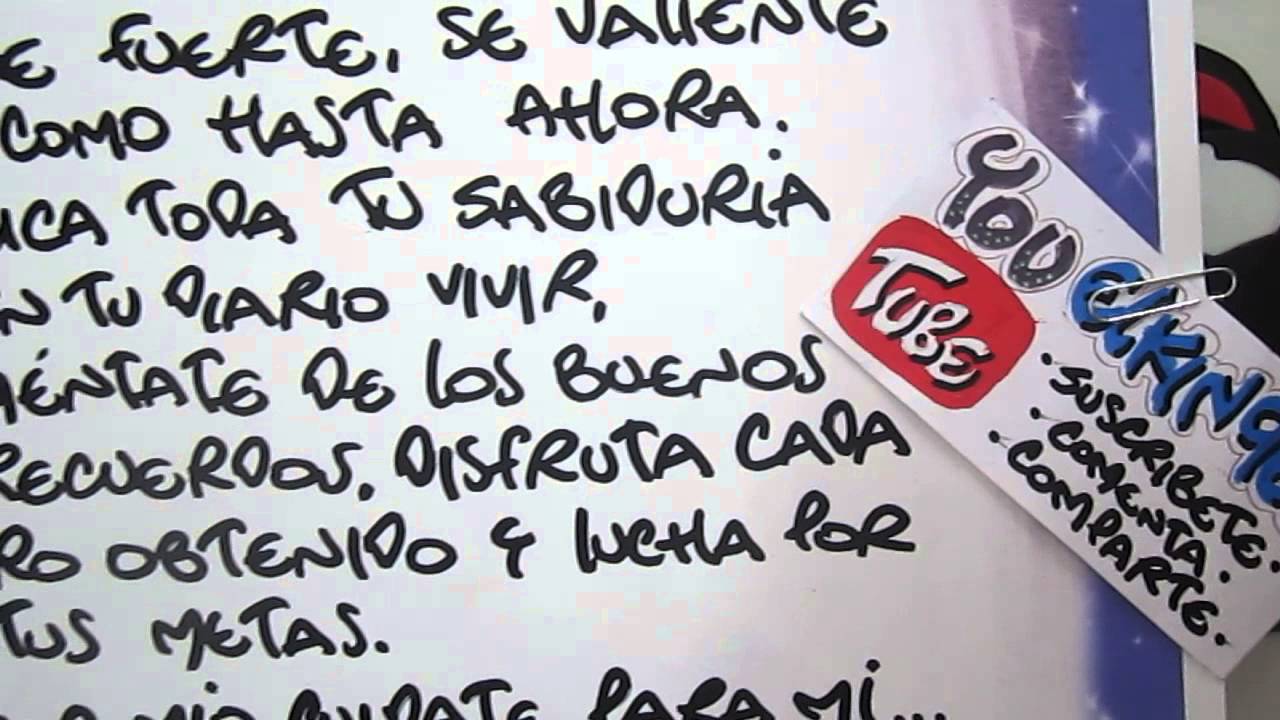 E FUERTE, SE VALIENTE
COMO HASTA AHORA.
UCA TODA TU SABIDURÍA
N TU DIARIO VIVIR,
MÉNTATE DE LOS BUENOS
RECUERDOS. DISFRUTA CADA
RO OBTENIDO Y LUCHA POR
TUS METAS.
MIO CUIDATE PARA MÍ...
YOU
TUBE
ELKIN96
• SUSCRIBETE.
• COMENTA.
• COMPARTE.